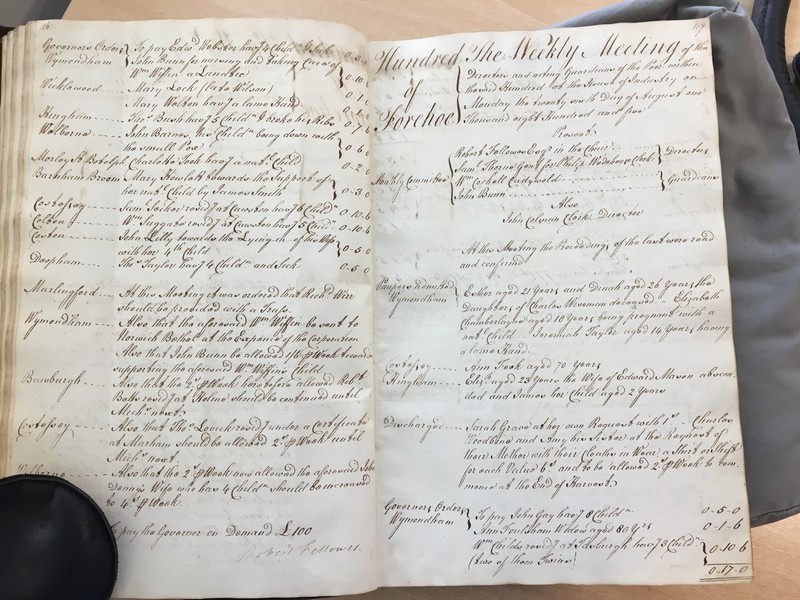 16
Governors Orders To pay Edwd Webster havg 4 Childn & Sick
Wymondham John Bunn for moving and taking Care of
Wm Wiffin a Lunatic 0-10-
Wicklewood Mary Lock (late Wilson) 0-1-
Mary Walton havg a lame Hand
Hingham Thos Bush havg 5 Childn & broke his Ribs 0-7-
Welborne John Barnes, his Childn being down with
the Small Pox 0-6-0
Morley St Botolph Charlote Took havg a natl Child 0-2-0
Barnham Broom Mary Hewlett towards the Support of
her natl Child by James Smith 0-3-0
Costessey Saml resid7 at Cawston havg 6 Childn 0-10-6
Colton Wm Juggate resid7 at Cawston havg 5 Childn 0-10-6
Coston John Lilly towards the Lying-in of his Wife
with her 4th Child 0-5-0
Deopham Thos Taylor havg 4 Childn and Sick 0-5-0
Marlingford At this Meeting it was ordered that Richd Wier
should be provided with a Truss.
Wymondham Also that the aforesaid Wm Wiffin be sent to
Norwich Bethel at the Expence of the Corporation
Also that John Bunn be allowed 1/6 ⅌ Week toward
supporting the aforesaid Wm Wiffin's Child.
Bawburgh Also that the 2s ⅌ Week heretofore allowed Robt
Betts resid7 at Holme should be continued until
Michs next.
Costessey Also that Thos resid7 under a Certificate
at Marham should be allowed 2s ⅌ Week until
Michs next.
Welborne Also that the 2s ⅌ Week now allowed the aforesaid John
Wife who has 4 Childn should be increased
to 4s ⅌ Week.
To pay the Governor on Demand £100
Robert Fellowes.
Hundred of Forehoe
The Weekly Meeting of the
Directors and acting Guardians of the Poor within
the said Hundred at the House of Industry on
Monday the twenty sixth Day of August one
Thousand eight Hundred and five
Present
Robert Fellowes Esqr in the Chair
Saml Thorne Gent for Philip Wodehouse Clerk Directors
Monthly Committee
Wm Cockell
John Bunn Guardians
Also
John Colman Clerk Director
At this Meeting the Proceedings of the last were read
and confirmed
Paupers admitted
Wymondham Esther aged 21 Years and Dinah aged 26 Years the
Daughters of Charles Wiseman deceased Elizabeth
Chamberlayne aged 18 Years being pregnant with a
natl Child Jeremiah Taylor aged 14 Years having
a lame Hand.
Costessey Ann Took aged 70 Years
Hingham Elizth aged 23 Years the Wife of Edward Mason abscon-
ded and James her Child aged 2 Years
Discharged Sarah Grave at her own Request with 1s Charles
Woodbine and Amy his Sister at the Request of
their Mother with their Cloaths in Wear a Shirt or Shift
for each Value 6s and to be allowed 2s ⅌ Week to com-
mence at the End of Harvest.
Governors Orders
Wymondham To pay John Gay havg 8 Childn 0-5-0
Ann Foulsham Widow aged 80 Yrs 0-1-6
Wm Childs resid7 at Tasburgh havg 3 Childn
(two of them Twins) 0-10-6
0-17-0